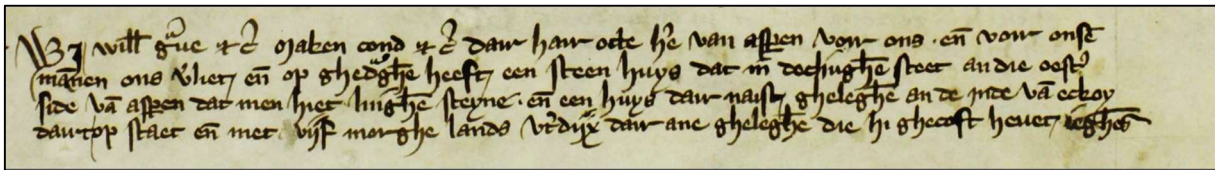 Wi will gͣue etc̃ maken cond etc̃ dair hair otte h̾e van aspen voir ons · en̄ voir onsē
mānen ons v̾liet en̄ op ghedͣghē heeft een steen huys dat in steet an die oest̾
side vā aspen dat men hiet steyne · en̄ een huys dair naist gheleghē an de side vā eckoy
dair op staet en̄ met vijf morghe lands dair ane gheleghē die hi ghecoft hevet ieghēs